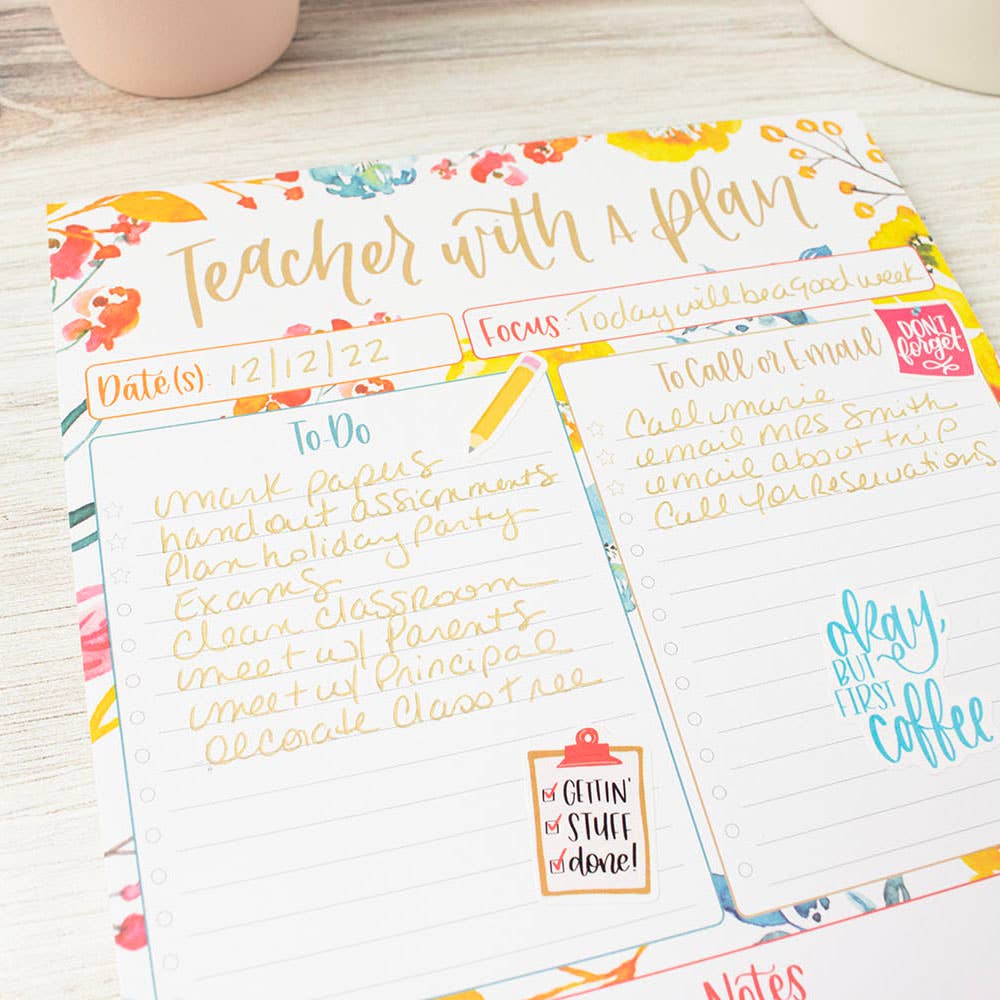 Teacher with a plan
Date(s): 12/12/22
Focus: Today will be a good week
To-Do
mark papers
hand out assignments
Plan holiday Party
Exams
Clean Classroom
meet w/ Parents
meet w/ Principal
Decorate Class tree
GETTIN'
STUFF
done!
To Call or Email
DON'T
forget
Call Marie
email MRS Smith
email about trip
Call for Reservations
okay,
BUT
FIRST
coffee
Notes